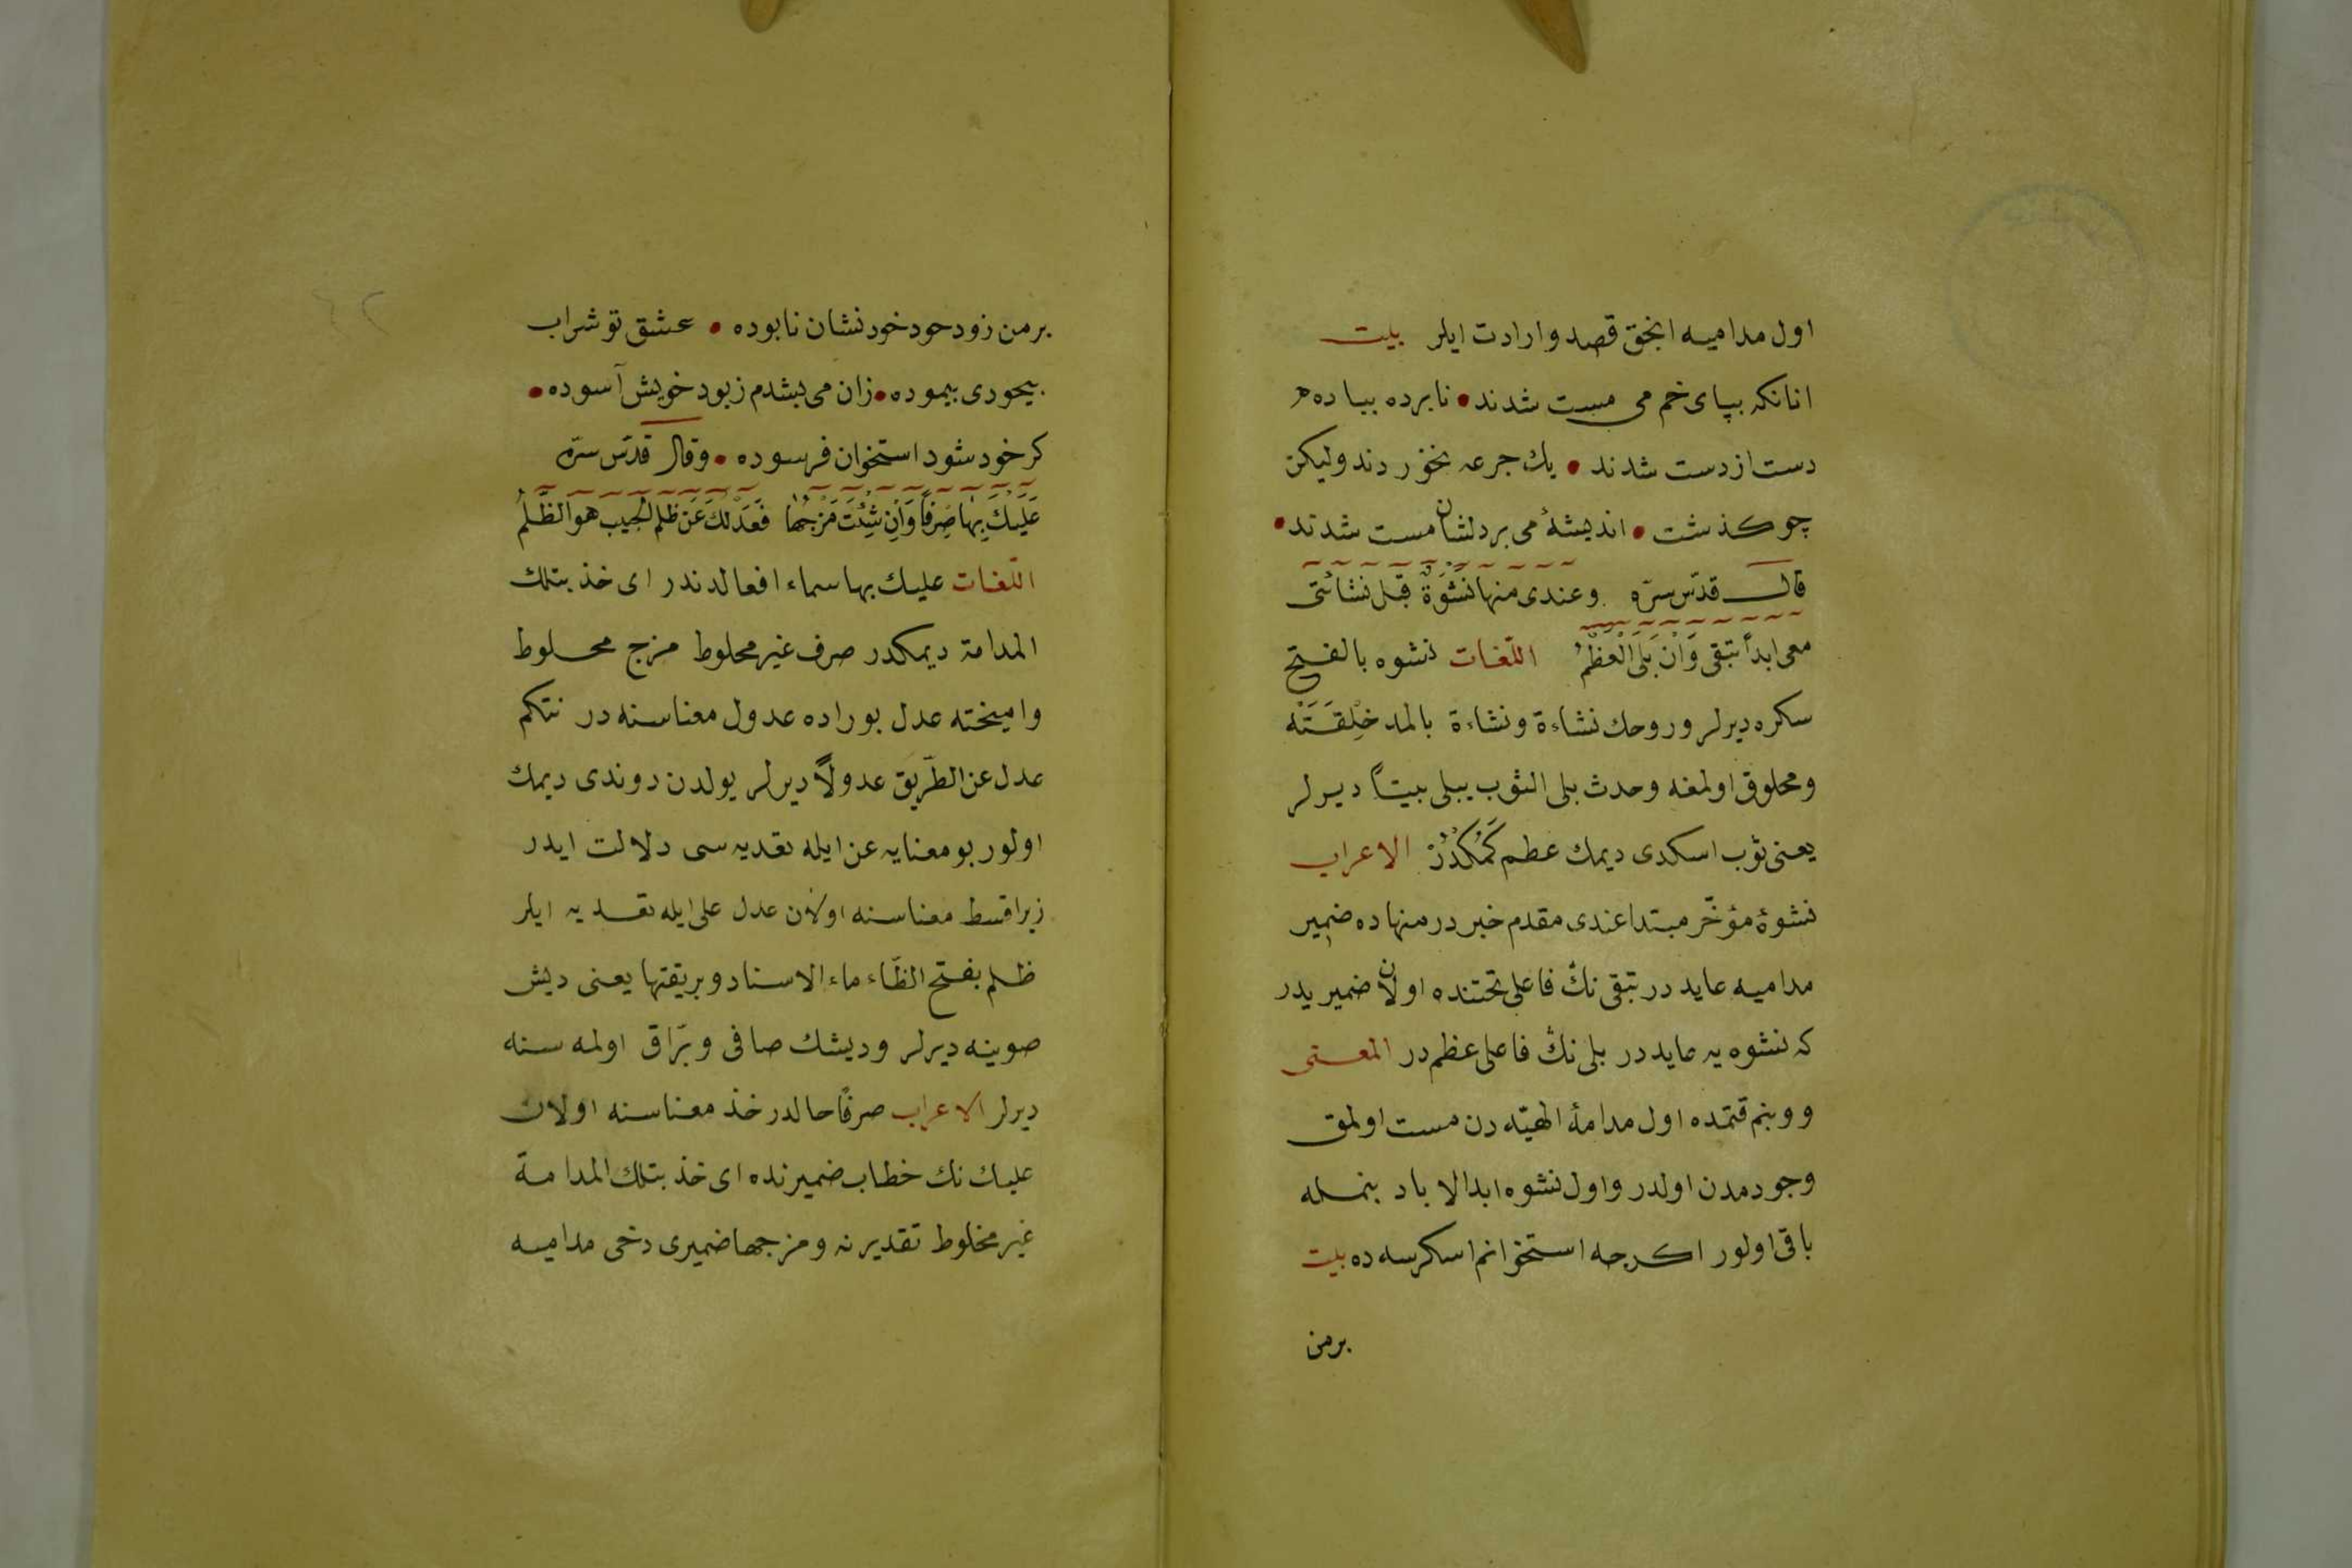 اول مداميه انجق قصد و ارادت ايلر بيت
انانكه بپاى خم مى مست شدند • نابرده بباده
دست از دست شدند • يك جرعه نخوردند وليكن
چو كذشت • انديشۀ مى بر دلشان مست شدند •
قال قدّس سرّه وعندى منها نَشْوَةٌ قبل نشأتى
معى ابداً تبقى وَاِنْ بَلىَ الْعَظْمُ اللّغات نشوه بالفتح
سكره ديرلر و روحك نشاءة و نشاءة بالمد خِلْقَتَنْه
و مخلوق اولمغه وحدث بلى الثوب يبلى بيتاً ديرلر
يعنى ثوب اسكدى ديمك عظم كَمُكْدُرْ الاعراب
نشوۀ مؤخّر مبتدا عندى مقدم خبر در منها ده ضمير
مداميه عايد در تبقى نكّ فاعلى تحتنده اولان ضميريدر
كه نشوه يه عايد در بلى نكّ فاعلى عظم در المعنى
و و بنم قتمده اول مدامۀ الهيّه دن مست اولمق
وجودمدن اولدر و اول نشوه ابد الاباد بنمله
باقى اولور اكرچه استخوانم اسكرسه ده بيت
برمن
برمن زود حود خود نشان نابوده • عشق تو شراب
بيحودى بيموده • زان مى بشدم زبود خويش آسوده •
كر خود شود استخوان فرسوده • وقال قدّس سرّه
عَلَيْكَ بِهَا صِرْفاً وَاِنْ شِئْتَ مَزْجَهَا فَعَدْلُكَ عَنْ ظلم الحبيب هو الظُّلْمُ
اللّغات عليك بها اسماء افعالدندر اى خذ بتلك
المدامة ديمكدر صرف غير محلوط مزج محلوط
واميخته عدل بوراده عدول معناسنه در نتكم
عدل عن الطّريق عدولاً ديرلر يولدن دوندى ديمك
اولور بو معنايه عن ايله تعديه سى دلالت ايدر
زيرا قسط معناسنه اولان عدل على ايله تعديه ايلر
ظلم بفتح الظّاء ماء الاسناد و بريقتها يعنى ديش
صوينه ديرلر و ديشك صافى و برّاق اولمه سنه
ديرلر الاعراب صرفاً حالدر خذ معناسنه اولان
عليك نك خطاب ضميرنده اى خذ بتلك المدامة
غير مخلوط تقديرنه و مزجها ضميرى دخى مداميه